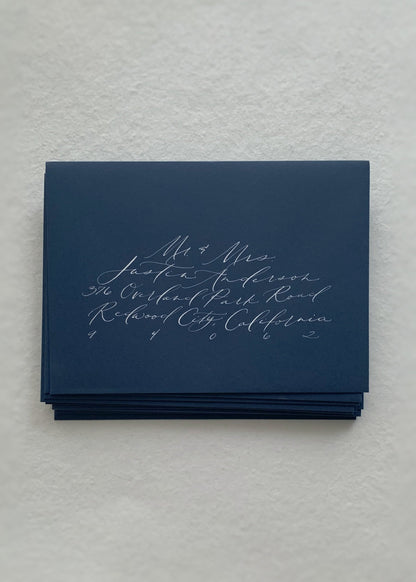 Mr & Mrs.
Justin Anderson
376 Overland Park Road
Redwood City, California
94062